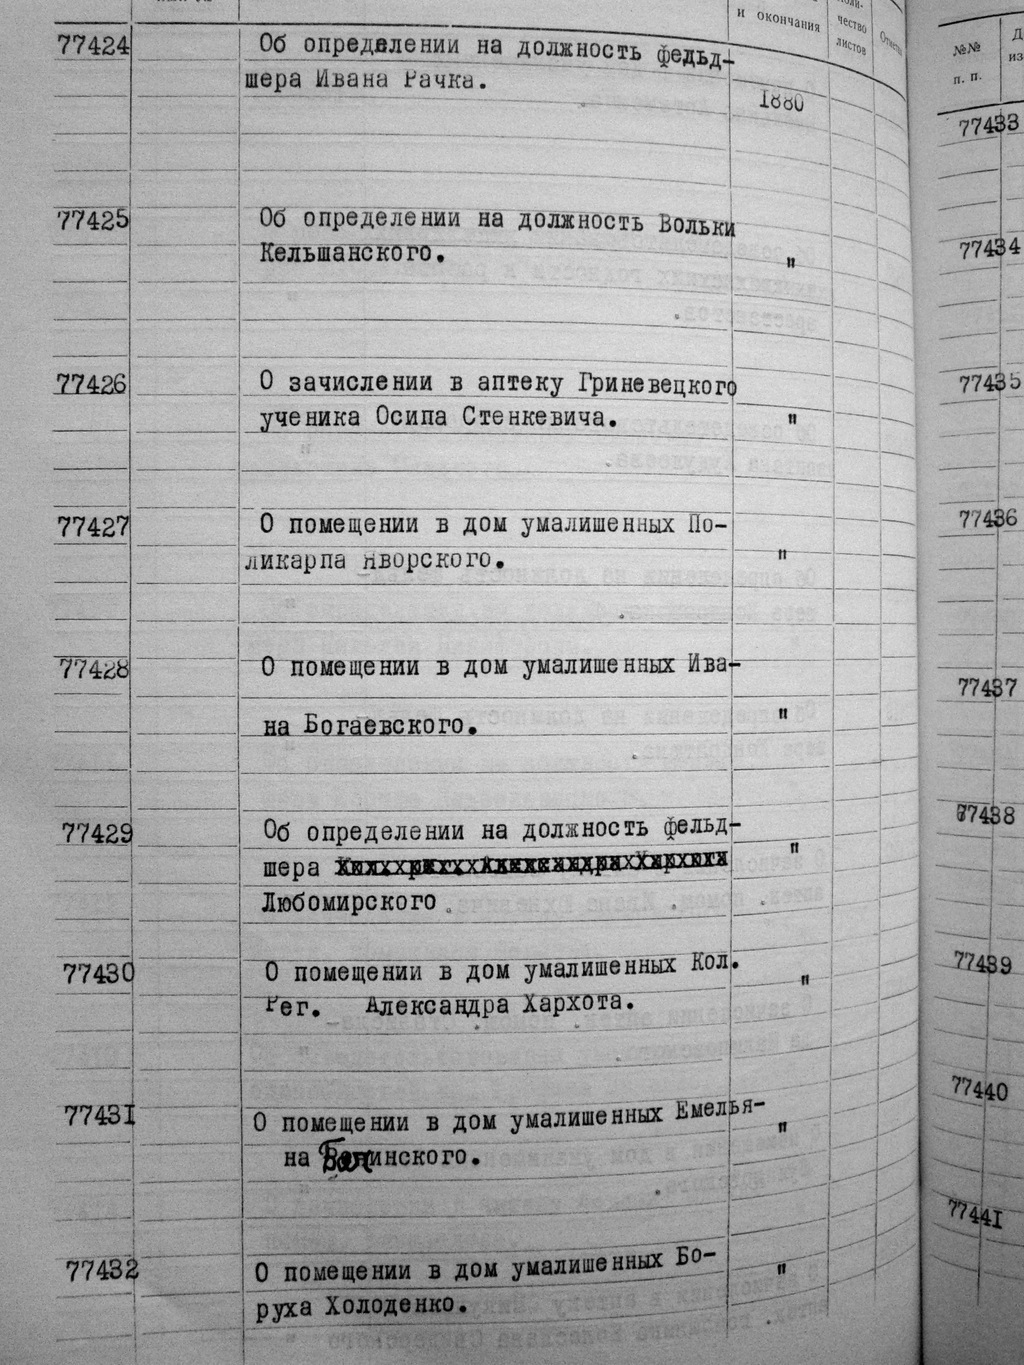 и окончания
чество
листов
№№
п. п.
77424 Об определении на должность фельд-
шера Ивана Рачка.
1880
77425 Об определении на должность Вольки
Кельшанского. "
77426 О зачислении в аптеку Гриневецкого
ученика Осипа Стенкевича. "
77427 О помещении в дом умалишенных По-
ликарпа Яворского. "
77428 О помещении в дом умалишенных Ива-
на Богаевского. "
77429 Об определении на должность фельд-
шера "
Любомирского.
77430 О помещении в дом умалишенных Кол.
Рег. Александра Хархота. "
77431 О помещении в дом умалишенных Емелья-
на инского. "
77432 О помещении в дом умалишенных Бо-
руха Холоденко. "
77433
77434
77435
77436
77437
77438
77439
77440
77441